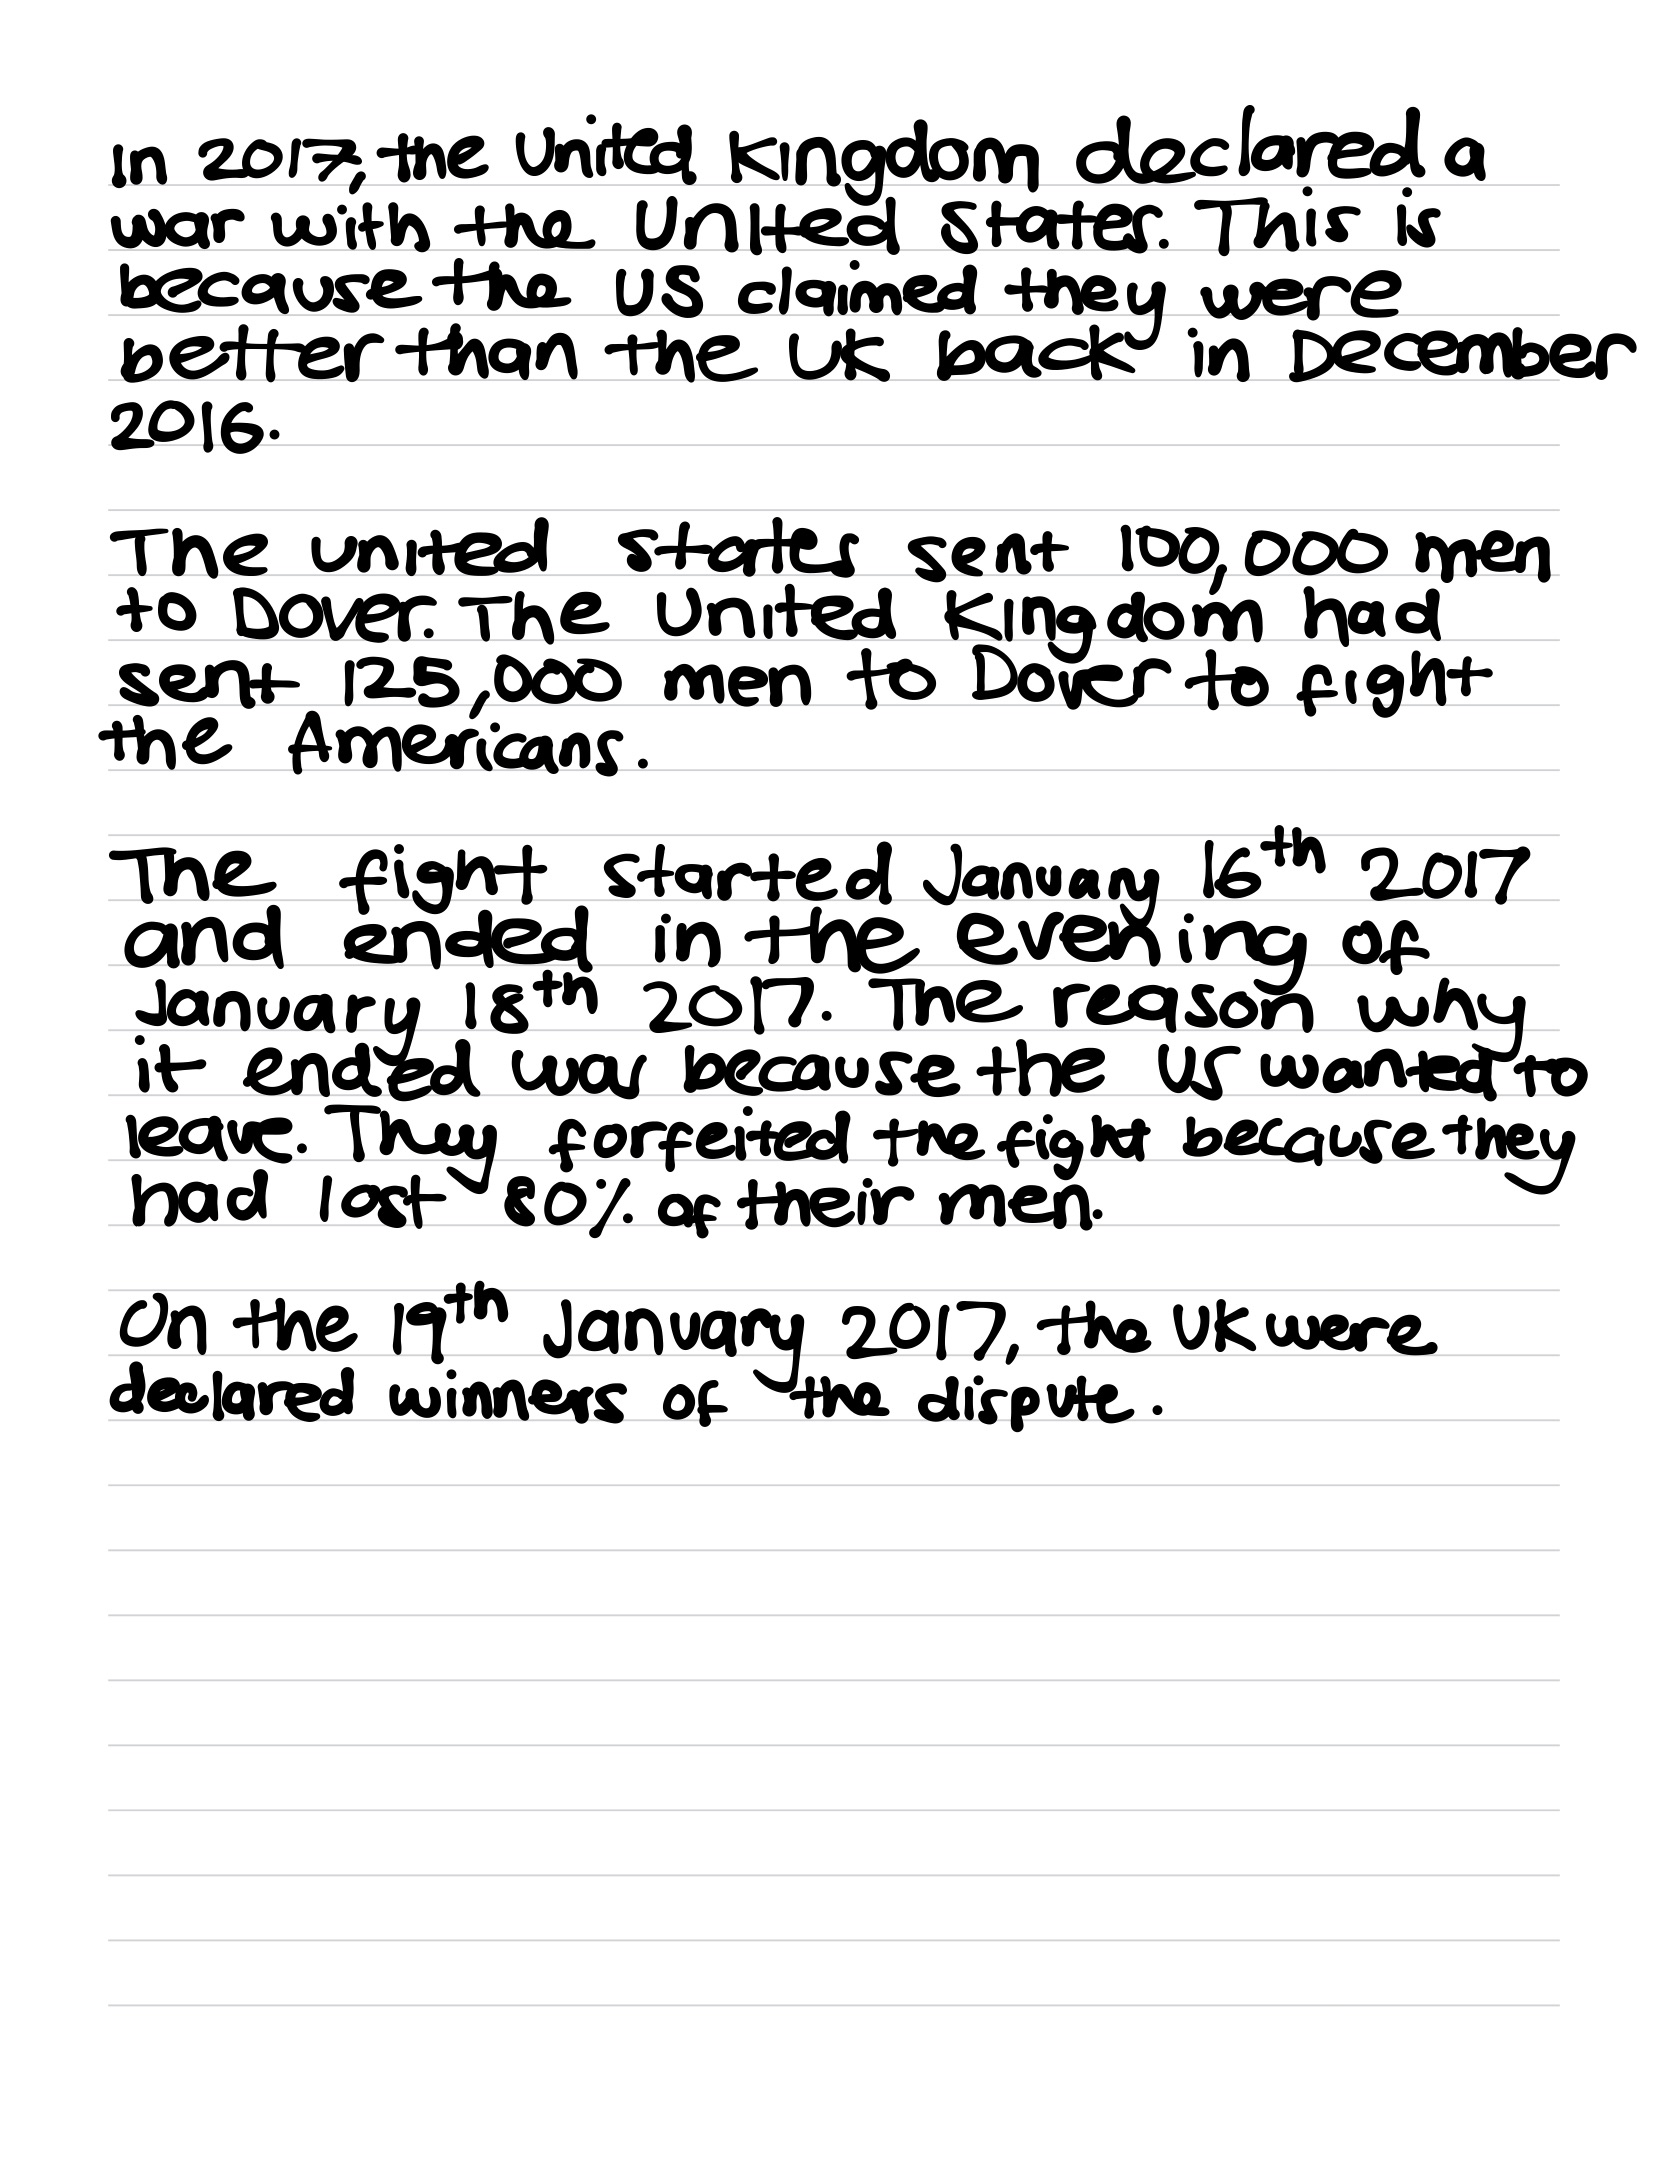 In 2017, the United Kingdom declared a
war with the United States. This is
because the US claimed they were
better than the UK back in December
2016.
The united states sent 100,000 men
to Dover. The United Kingdom had
sent 125,000 men to Dover to fight
the Americans.
The fight started January 16th 2017
and ended in the evening of
January 18th 2017. The reason why
it ended was because the US wanted to
leave. They forfeited the fight because they
had lost 80% of their men.
On the 19th January 2017, the UK were
declared winners of the dispute.